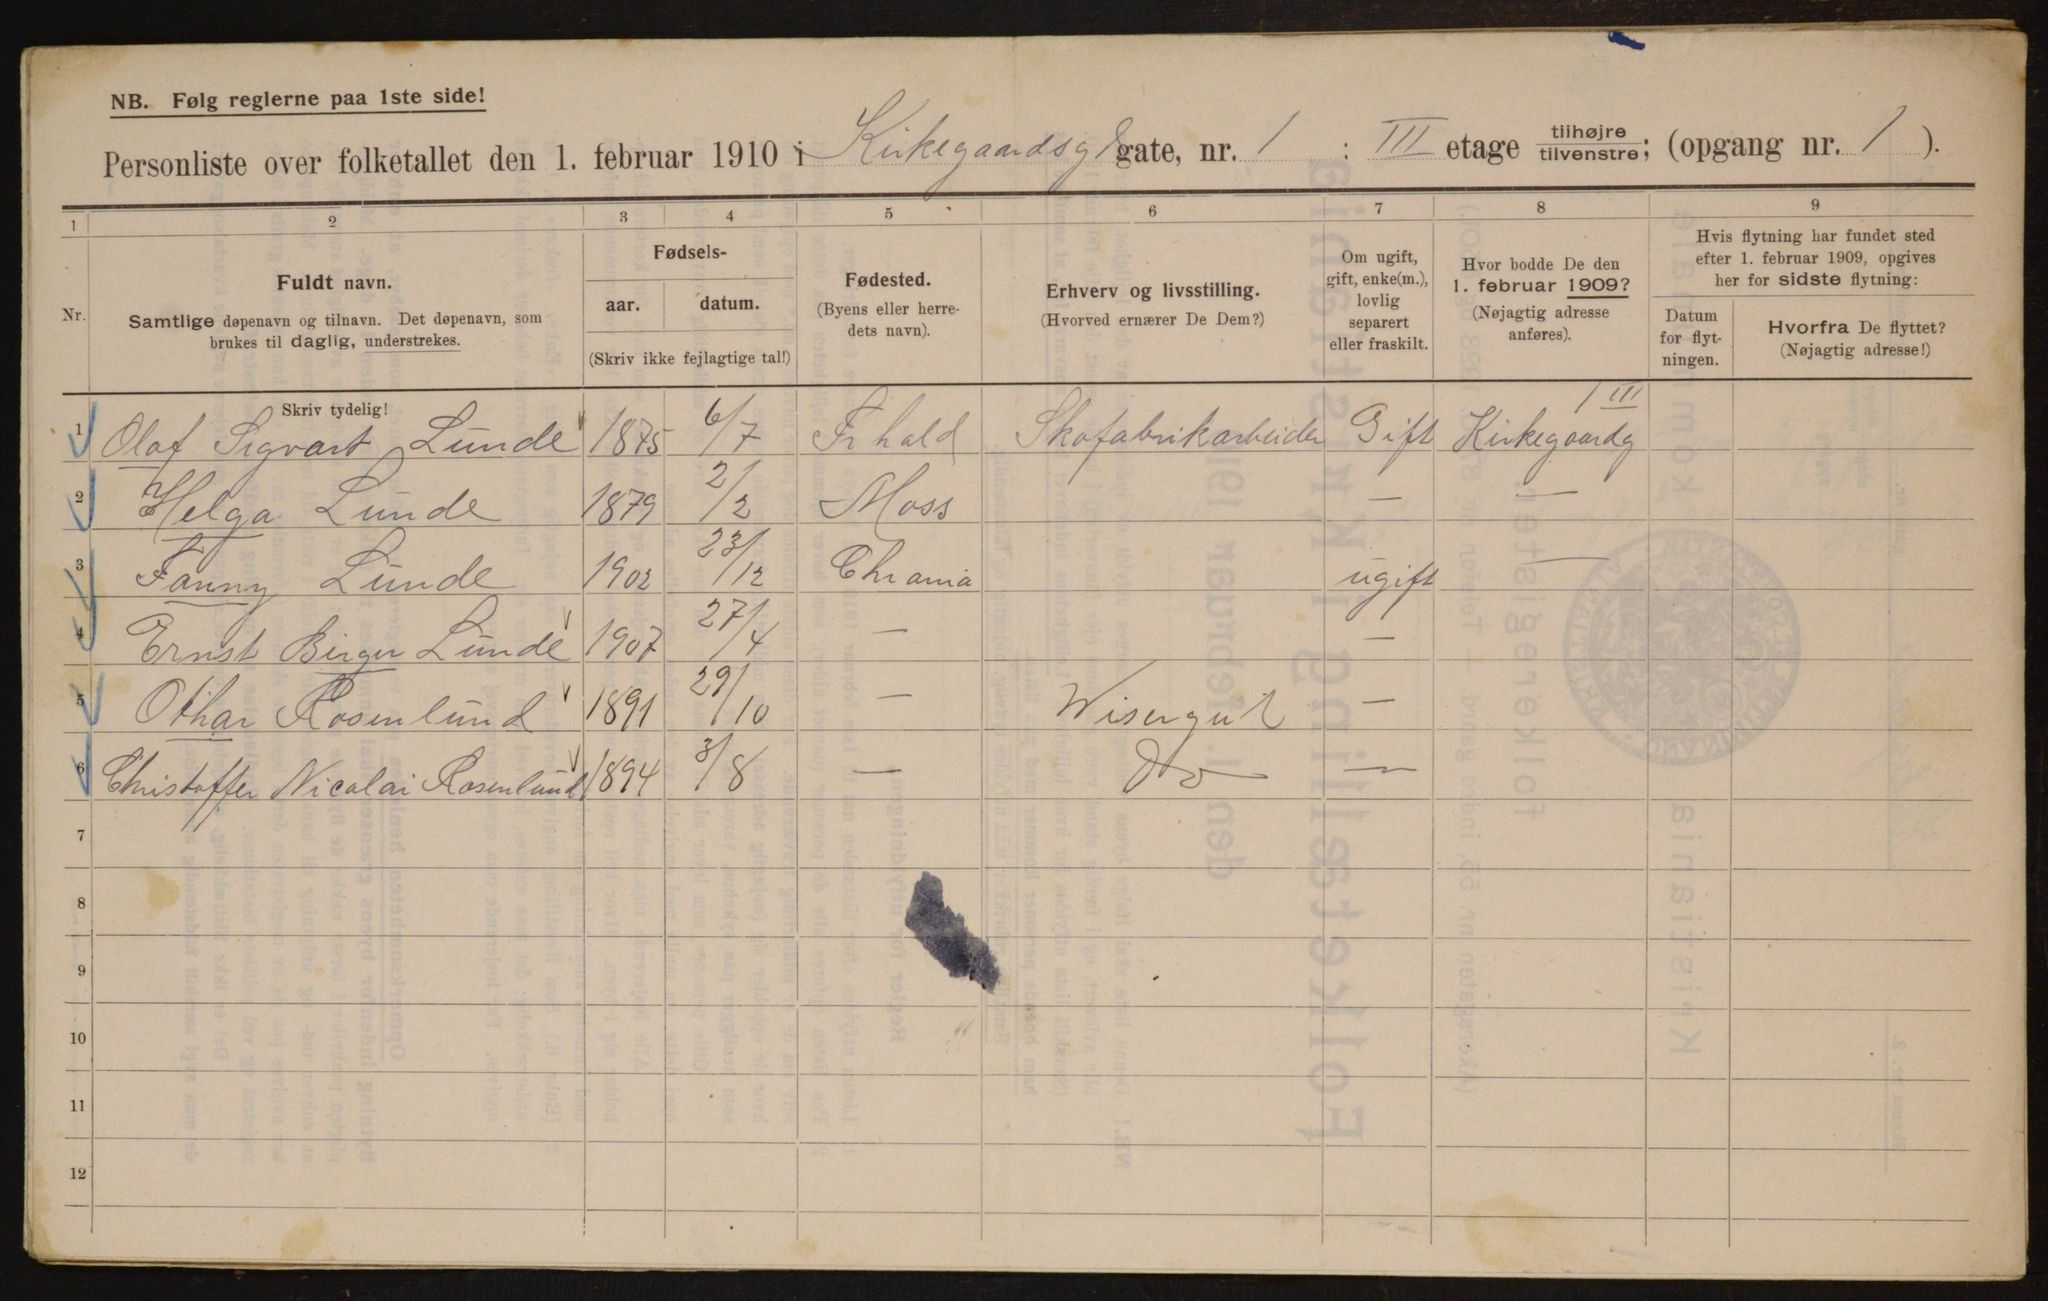 NB. Følg reglerne paa 1ste side!
Personliste over folketallet den 1. februar 1910 i Kirkegaardsgd gate, nr. 1 : III etage tilhøjre/tilvenstre; (opgang nr. 1 ).
1 2 3 4 5 6 7 8 9
Nr.
Fuldt navn.
Samtlige døpenavn og tilnavn. Det døpenavn, som
brukes til daglig, understrekes.
Fødsels-
aar. datum.
(Skriv ikke fejlagtige tal!)
Fødested.
(Byens eller herre-
dets navn).
Erhverv og livsstilling.
(Hvorved ernærer De Dem?)
Om ugift,
gift, enke(m.),
lovlig
separert
eller fraskilt.
Hvor bodde De den
1. februar 1909?
(Nøjagtig adresse
anføres).
Hvis flytning har fundet sted
efter 1. februar 1909, opgives
her for sidste flytning:
Datum
for flyt-
ningen.
Hvorfra De flyttet?
(Nøjagtig adresse!)
Skriv tydelig!
1 Olaf Sigvart Lunde 1875 6/7 Frhald Skofabrikarbeider Gift Kirkegaardg 1 III
2 Helga Lunde 1879 2/2 Moss — —
3 Fanny Lunde 1902 23/12 Chrania ugift —
4 Ernst Birger Lunde 1907 27/4 — —
5 Othar Rosenlund 1891 29/10 — Wisergut —
6 Christoffer Nicolai Rosenlund 1894 3/8 — Do —
7
8
9
10
11
12